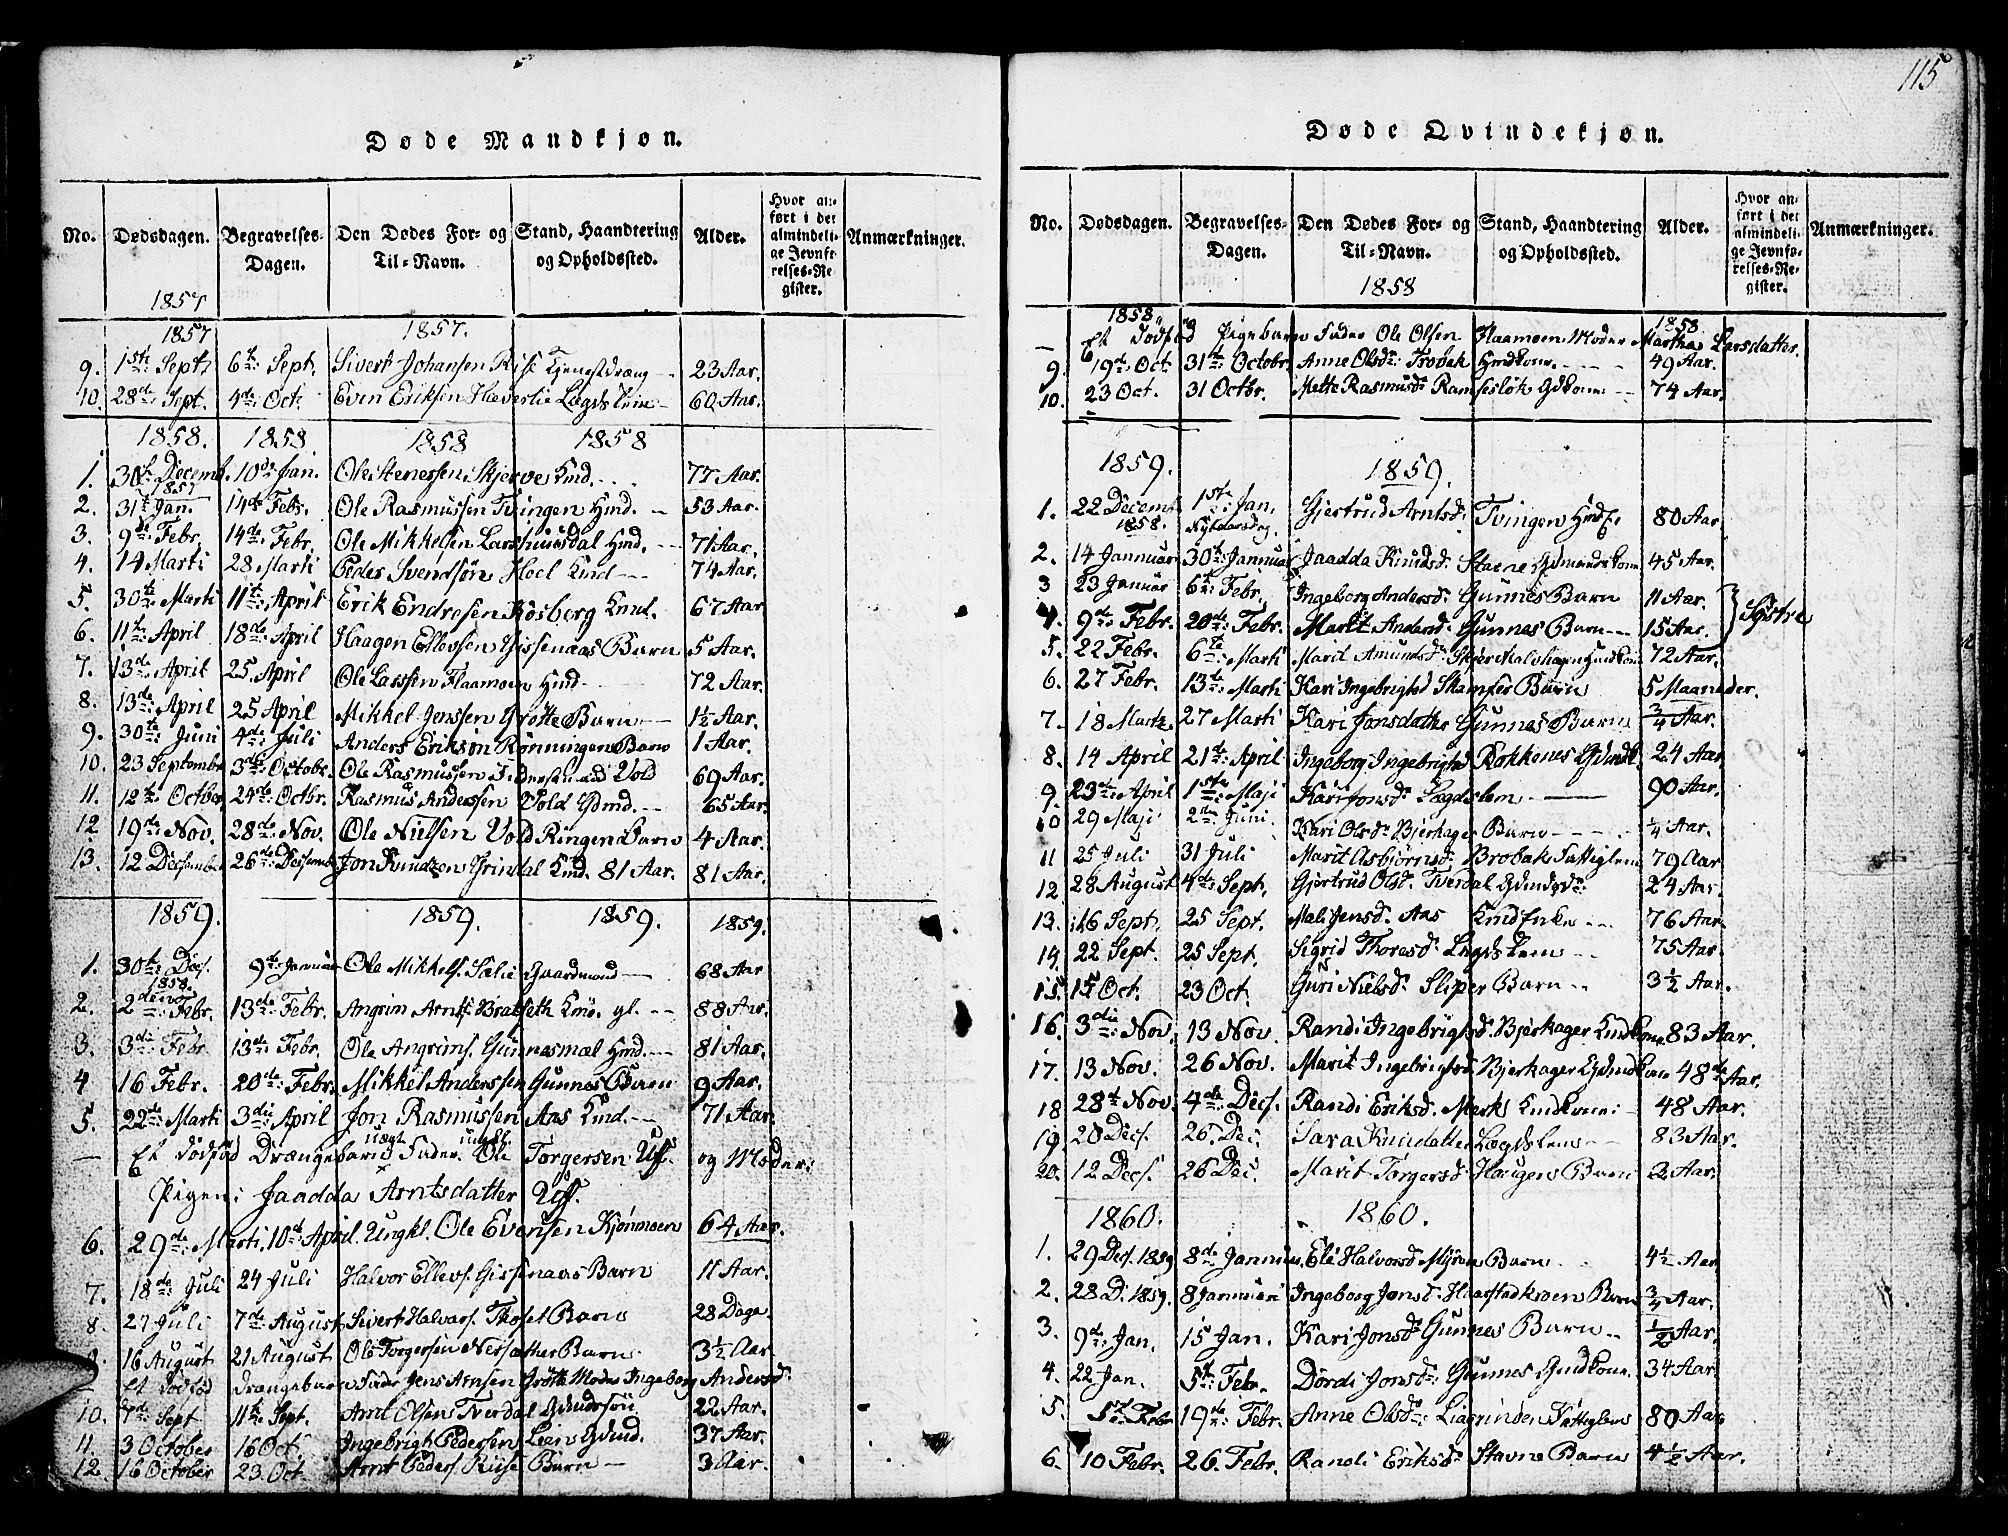 Døde Mandkjøn.
No. Dødsdagen. Begravelses-Dagen. Den Dødes For- og Til-Navn. Stand, Haandtering og Opholdssted. Alder. Hvor anført i det almindelige Jevnførelses-Register. Anmærkninger.
1857
1857 1857.
9. 1ste Sept. 6te Sept. Sivert Johansen Rise Tjenestdræng 23 Aar.
10. 28de Sept. 4de Oct. Even Eriksen Haverlie Lægdslem 60 Aar.
1858. 1858 1858 1858
1. 30te Decemb. 1857 10de Jan. Ole Stenersen Skjerve Kmd. 77 Aar.
2. 31te Jan. 14de Febr. Ole Rasmussen Tvingen Hmd. 53 Aar.
3. 9de Febr. 14de Febr. Ole Mikkelsen Larshuusdal Hmd. 71 Aar.
4. 14 Marti 28 Marti Peder Svendsøn Hoel Kmd 74 Aar.
5. 30te Marti 11te April Erik Endresen Kosberg Kmd. 67 Aar
6. 11te April 18de April Haagen Ellevsen Gissenaas Barn 5 Aar.
7. 13de April 25 April Ole Larssen Flaamoen Hmd 72 Aar.
8. 13de April 25 April Mikkel Jenssen Grøtte Barn 1½ Aar.
9. 30te Juni 4de Juli Anders Eriksøn Rønningen Barn 1 Aar.
10. 23 Septembr 3die Octobr. Ole Rasmussen Vold 69 Aar.
11. 12te October 24de Octbr. Rasmus Anderssen Vold Gdmd. 65 Aar.
12 19de Nov. 28de Nov. Ole Nielsen Vold Ringen Barn 4 Aar.
13. 12 Decembr 26de Decembr Jon Knudsen Grindal Kmd. 81 Aar. 81 Aar.
1859. 1859. 1859. 1859.
1. 30te Dec. 1858. 9de Januar Ole Mikkels. Sælie Gaardmand 68 Aar
2. 2den Febr. 13de Febr. Angrim Arnts. Bratseth Kmd. gl. 88 Aar.
3. 3die Febr. 13de Febr. Ole Angrims. Gunnesmæl Hmd. 81 Aar.
4 16 Febr. 20de Febr. Mikkel Anderssen Gunnes Barn 9 Aar.
5. 22de Marti 3die April Jon Rasmussen Aas Kmd. 71 Aar.
Et dødfød Drængebarn uægt Fader: Ungk. Ole Torgersen Uf. og Moder:
Pigen: Jaadda Arntsdatter Uf.
6. 29de Marti. 10de April. Ungkl. Ole Evensen Kjønmoen 64 Aar.
7. 18de Juli 24 Juli Halvor Ellevs. Gissenaas Barn 11 Aar.
8. 27 Juli 7de August Sivert Halvors. Barn 28 Dage
16 August 21 August Ole Torgersen Barn 3½ Aar
Et dødfød Drængebarn Fader Jens Arnsen Grøtte Moder Ingeborg Andersd.
10. 7de Sept 11te Sept. Arnt Olsen Tverdal Gdmdssøn 22 Aar.
11. 3 October 16 Oct. Ingebrigt Pedersen Leen Gdmd. 37 Aar.
12. 16 October 23. Oct. Arnt Peders. Riise Barn 3 Aar.
115
Døde Qvindekjøn.
No. Dødsdagen. Begravelses-Dagen. Den Dødes For- og Til-Navn. Stand, Haandtering og Opholdssted. Alder. Hvor anført i det almindelige Jevnførelses-Register. Anmærkninger.
1858
1858 1858
Et dødfød Pigebarn Fader Ole Olsen Flaamoen Moder Martha Larsdatter.
9. 19de Oct 31te Octobr. Anne Olsd. Trøøak Hmdkone 49 Aar.
10. 23 Oct. 31 Octbr. Mette Rasmusd. Ramsesløk Gdkone 74 Aar.
1859. 1859.
1. 22 Decemb 1858. 1ste Jan. Nytaarsdag. Gjertrud Arntsd. Tvingen Hmd E. 80 Aar.
2. 14 Januar 30te Januar Jaadda Knudsd. Stavne Gdmandskone 45 Aar.
3 23 Januar 6te Febr. Ingeborg Andersd. Gunnes Barn 11 Aar.
4. 9de Febr. 20de Febr. Marit Andersd. Gunnes Barn 15 Aar. } Søstre
5. 22 Febr. 6te Marti Marit Amundsd. Hmdkone 72 Aar.
6. 27 Febr. 13de Marti Kari Ingebrigtsd Skamfer Barn 5 Maaneder.
7. 18 Marts 27 Marti Kari Jonsdatter Gunnes Barn ¾ Aar.
8. 14 April 21de April Ingeborg Ingebrigtsd Rokkenes Gdmdsk. 24 Aar
9. 23de April 1ste Maji Kari Jonsd. Lægdslem 90 Aar.
10 29 Maji 2den Juni Kari Olsd. Bjerkager Barn ¼ Aar.
11 25 Juli 31 Juli Marit Asbjørnsd. Brobak Fattiglem 79 Aar
12 28 August 4de Sept. Gjertrud Olsd. Tverdal Gdmdsd. 24 Aar.
13. 16 Sept. 25 Sept. Mali Jensd. Aas Kmd Enke 76 Aar.
14. 22 Sept. 25 Sept. Sigrid Thoresd. Lægdslem 75 Aar.
15. 15 Oct. 23 Oct. Guri Nielsd. Sliper Barn 3½ Aar.
16. 3die Nov. 13 Nov. Randi Ingebrigtsd. Bjerkager Kmdkone 83 Aar.
17. 13 Nov. 26 Nov. Marit Ingebrigtsd Bjerkager Gdmdkone 48de Aar.
18 28de Nov. 4de Dec. Randi Eriksd. Merk Kmdkone: 48 Aar.
19. 20 Dec. 26. Dec. Sara Knudsdatter Lægdslem 83 Aar.
20. 12 Dec. 26 Dec. Marit Torgersd. Haugen Barn 2 Aar.
1860. 1860.
1. 29 Dec. 1859 8de Januar. Eli Halvorsd. Myren Barn 4½ Aar
2. 28 D. 1859. 8 Januari Ingeborg Jonsd. Haarstadkroen Barn ¾ Aar.
3. 9de Jan. 15 Jan. Kari Jonsd. Gunnes Barn ½ Aar.
4. 22 Jan. 5te Febr. Dordi Jonsd. Gunnes Gmdkone. 34 Aar
5. 5te Febr 19de Febr. Anne Olsd. Fattiglem 80 Aar
6. 10 Febr. 26. Febr. Randi Eriksd. Stavne Barn 4½ Aar.